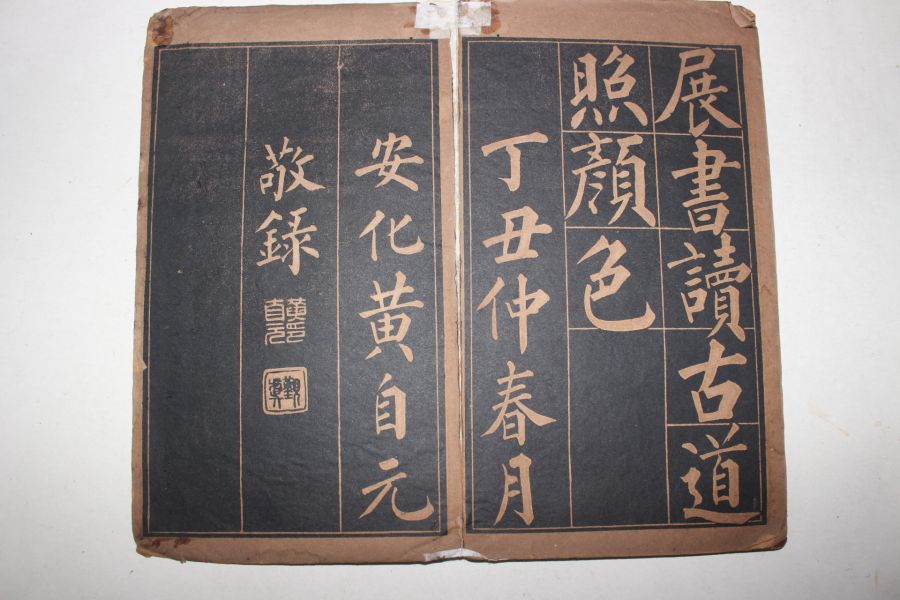 展書讀古道
照顏色
丁丑仲春月
安化黄自元
敬錄
黃自元印